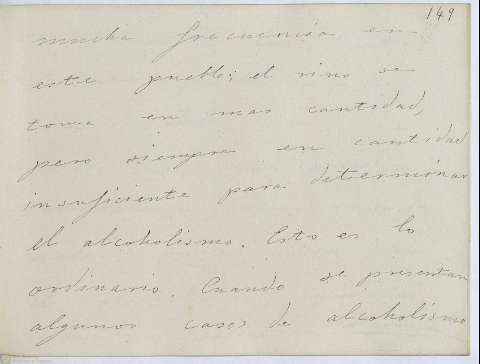 149
mucha frecuencia en
este pueblo; el vino se
toma en mas cantidad,
pero siempre en cantidad
insuficiente para determinar
el alcoholismo. Esto es lo
ordinario. Cuando se presentan
algunos casos de alcoholismo